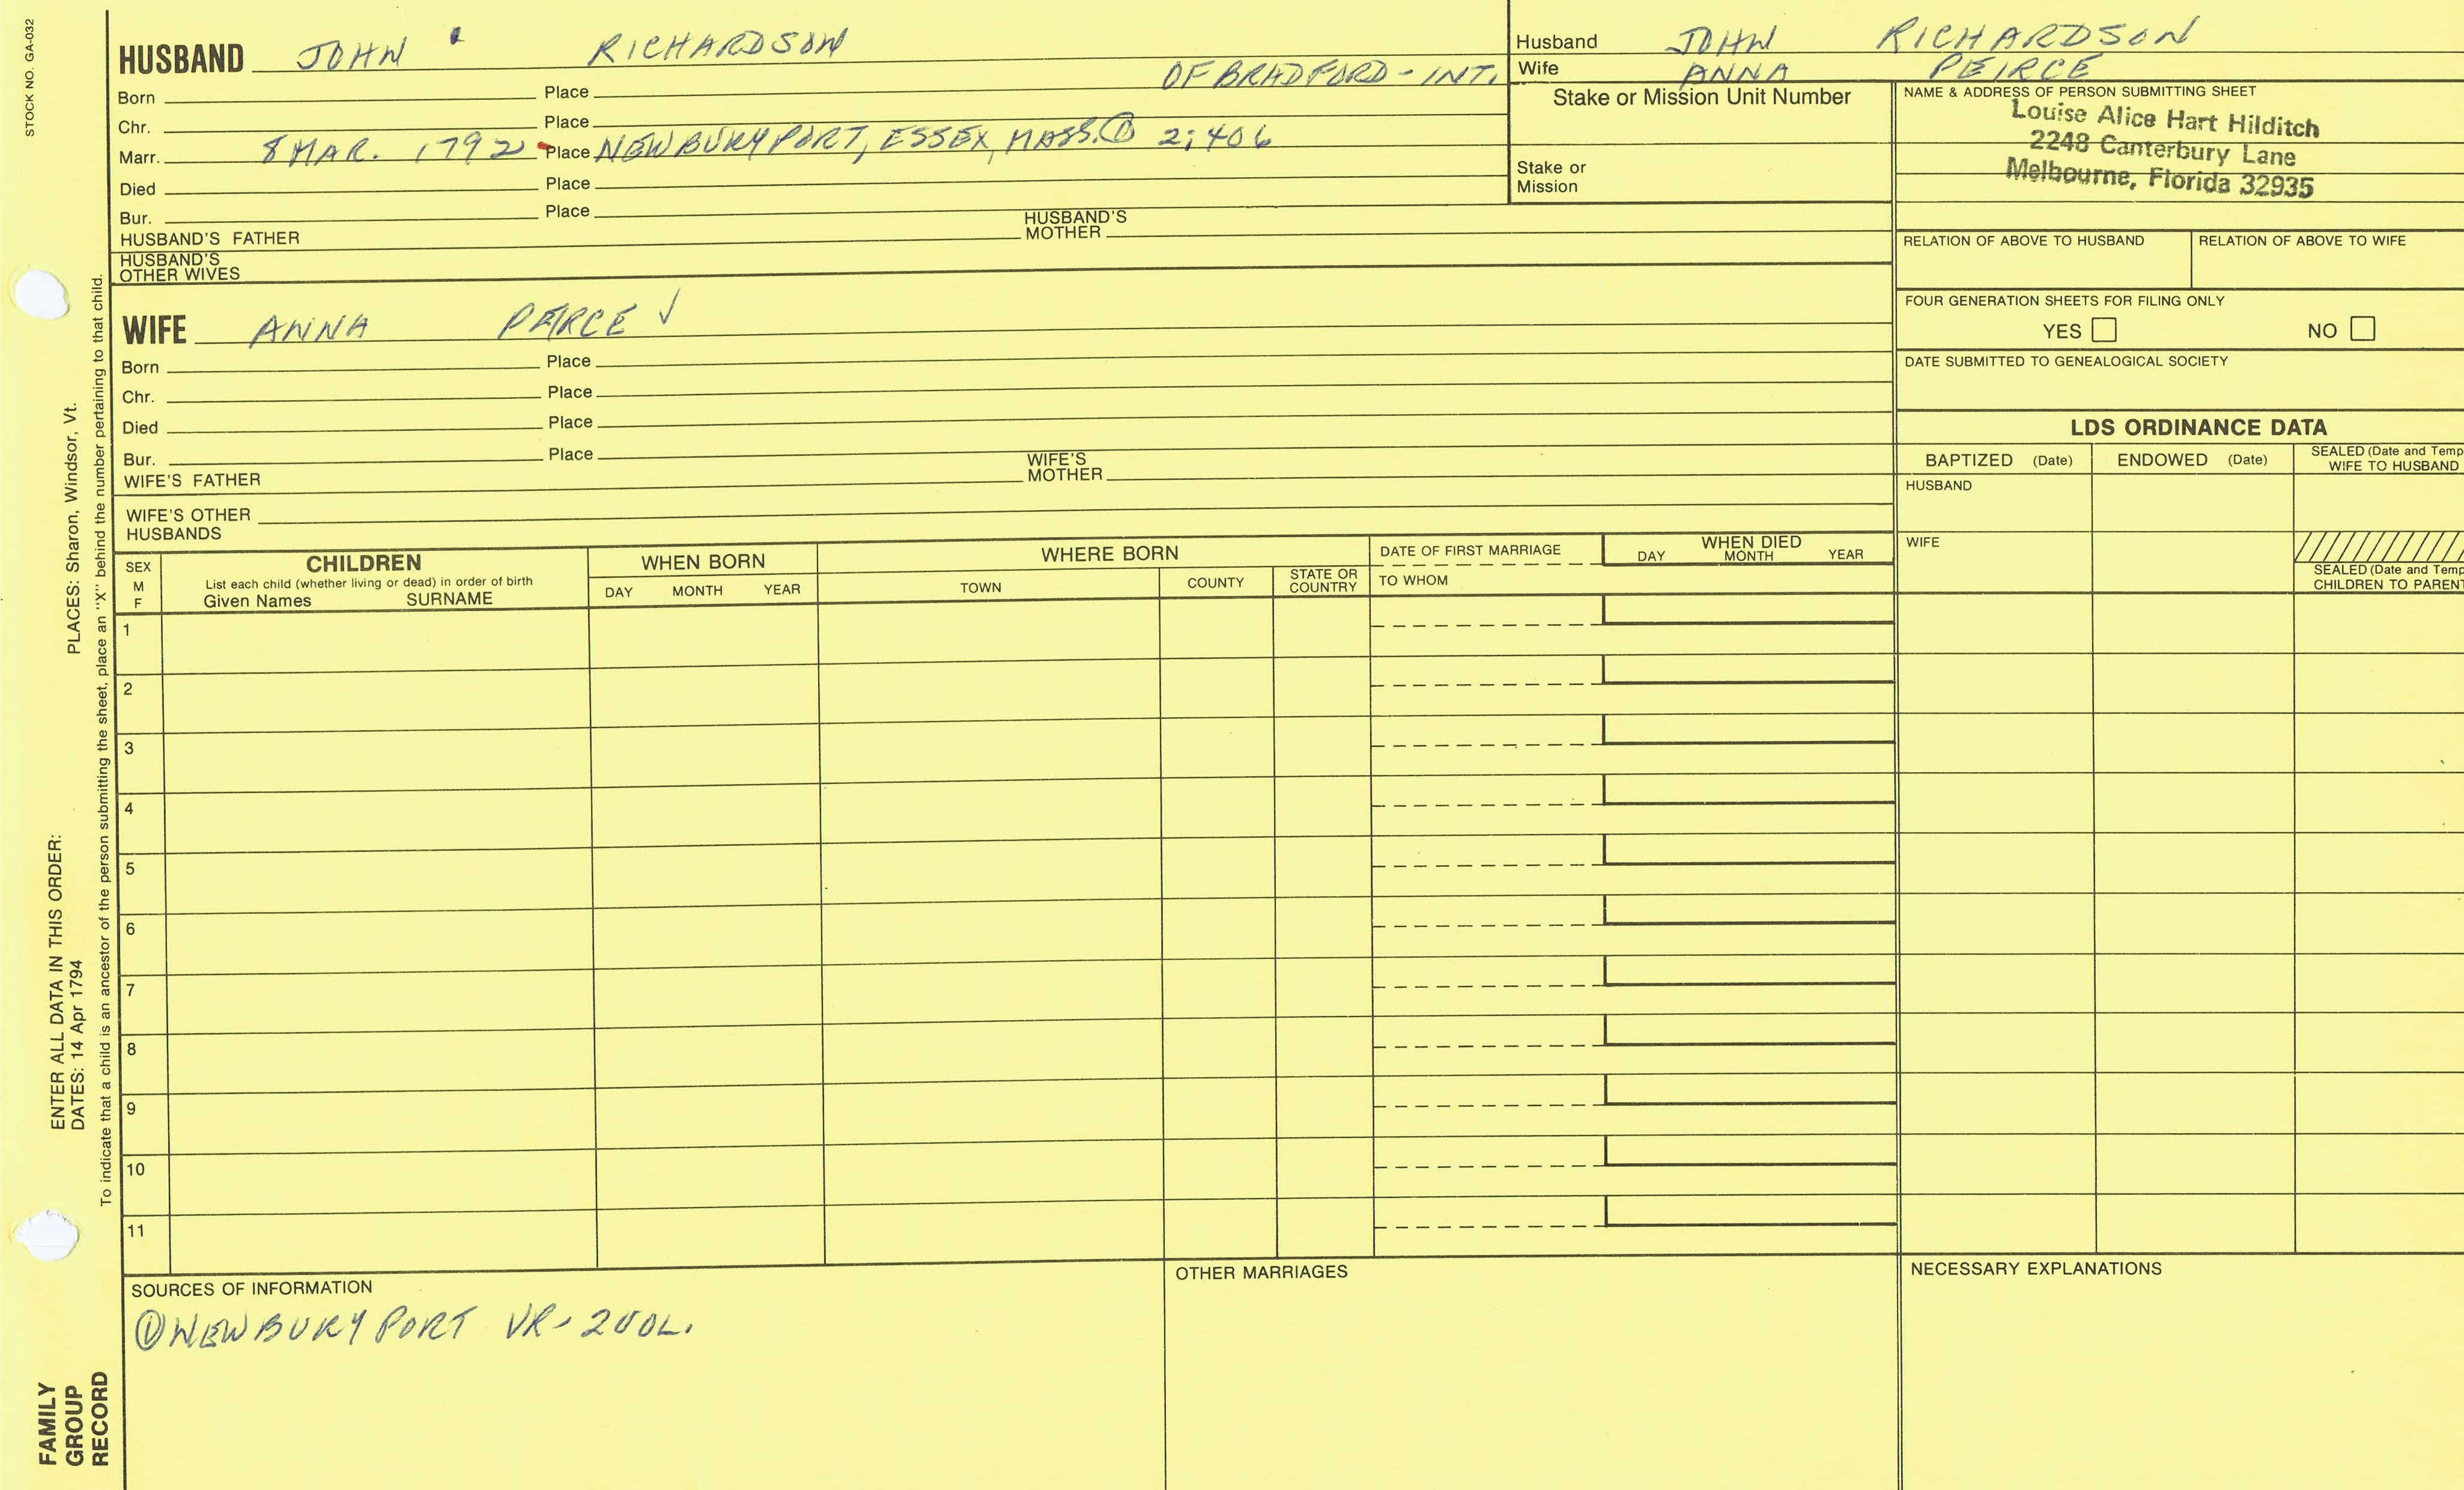 STOCK NO. GA-032
HUSBAND JOHN RICHARDSON
OF BRADFORD - INT.
Born Place
Chr. Place
Marr. 8 MAR. 1792 Place NEWBURYPORT, ESSEX, MASS. ① 2:406
Died Place
Bur. Place
HUSBAND'S FATHER HUSBAND'S MOTHER
HUSBAND'S OTHER WIVES
WIFE ANNA PEIRCE ✓
Born Place
Chr. Place
Died Place
Bur. Place
WIFE'S FATHER WIFE'S MOTHER
WIFE'S OTHER HUSBANDS
Husband JOHN RICHARDSON
Wife ANNA PEIRCE
Stake or Mission Unit Number
Stake or
Mission
NAME & ADDRESS OF PERSON SUBMITTING SHEET
Louise Alice Hart Hilditch
2248 Canterbury Lane
Melbourne, Florida 32935
RELATION OF ABOVE TO HUSBAND RELATION OF ABOVE TO WIFE
FOUR GENERATION SHEETS FOR FILING ONLY
YES NO
DATE SUBMITTED TO GENEALOGICAL SOCIETY
LDS ORDINANCE DATA
BAPTIZED (Date) ENDOWED (Date) SEALED (Date and Temp
WIFE TO HUSBAND
HUSBAND
WIFE
SEALED (Date and Temp
CHILDREN TO PARENT
SEX
M
F
CHILDREN
List each child (whether living or dead) in order of birth
Given Names SURNAME
WHEN BORN
DAY MONTH YEAR
WHERE BORN
TOWN COUNTY STATE OR COUNTRY
DATE OF FIRST MARRIAGE
TO WHOM
WHEN DIED
DAY MONTH YEAR
1
2
3
4
5
6
7
8
9
10
11
SOURCES OF INFORMATION
① NEWBURYPORT VR- 2VOL.
OTHER MARRIAGES
NECESSARY EXPLANATIONS
FAMILY
GROUP
RECORD
ENTER ALL DATA IN THIS ORDER:
DATES: 14 Apr 1794
PLACES: Sharon, Windsor, Vt.
To indicate that a child is an ancestor of the person submitting the sheet, place an "X" behind the number pertaining to that child.